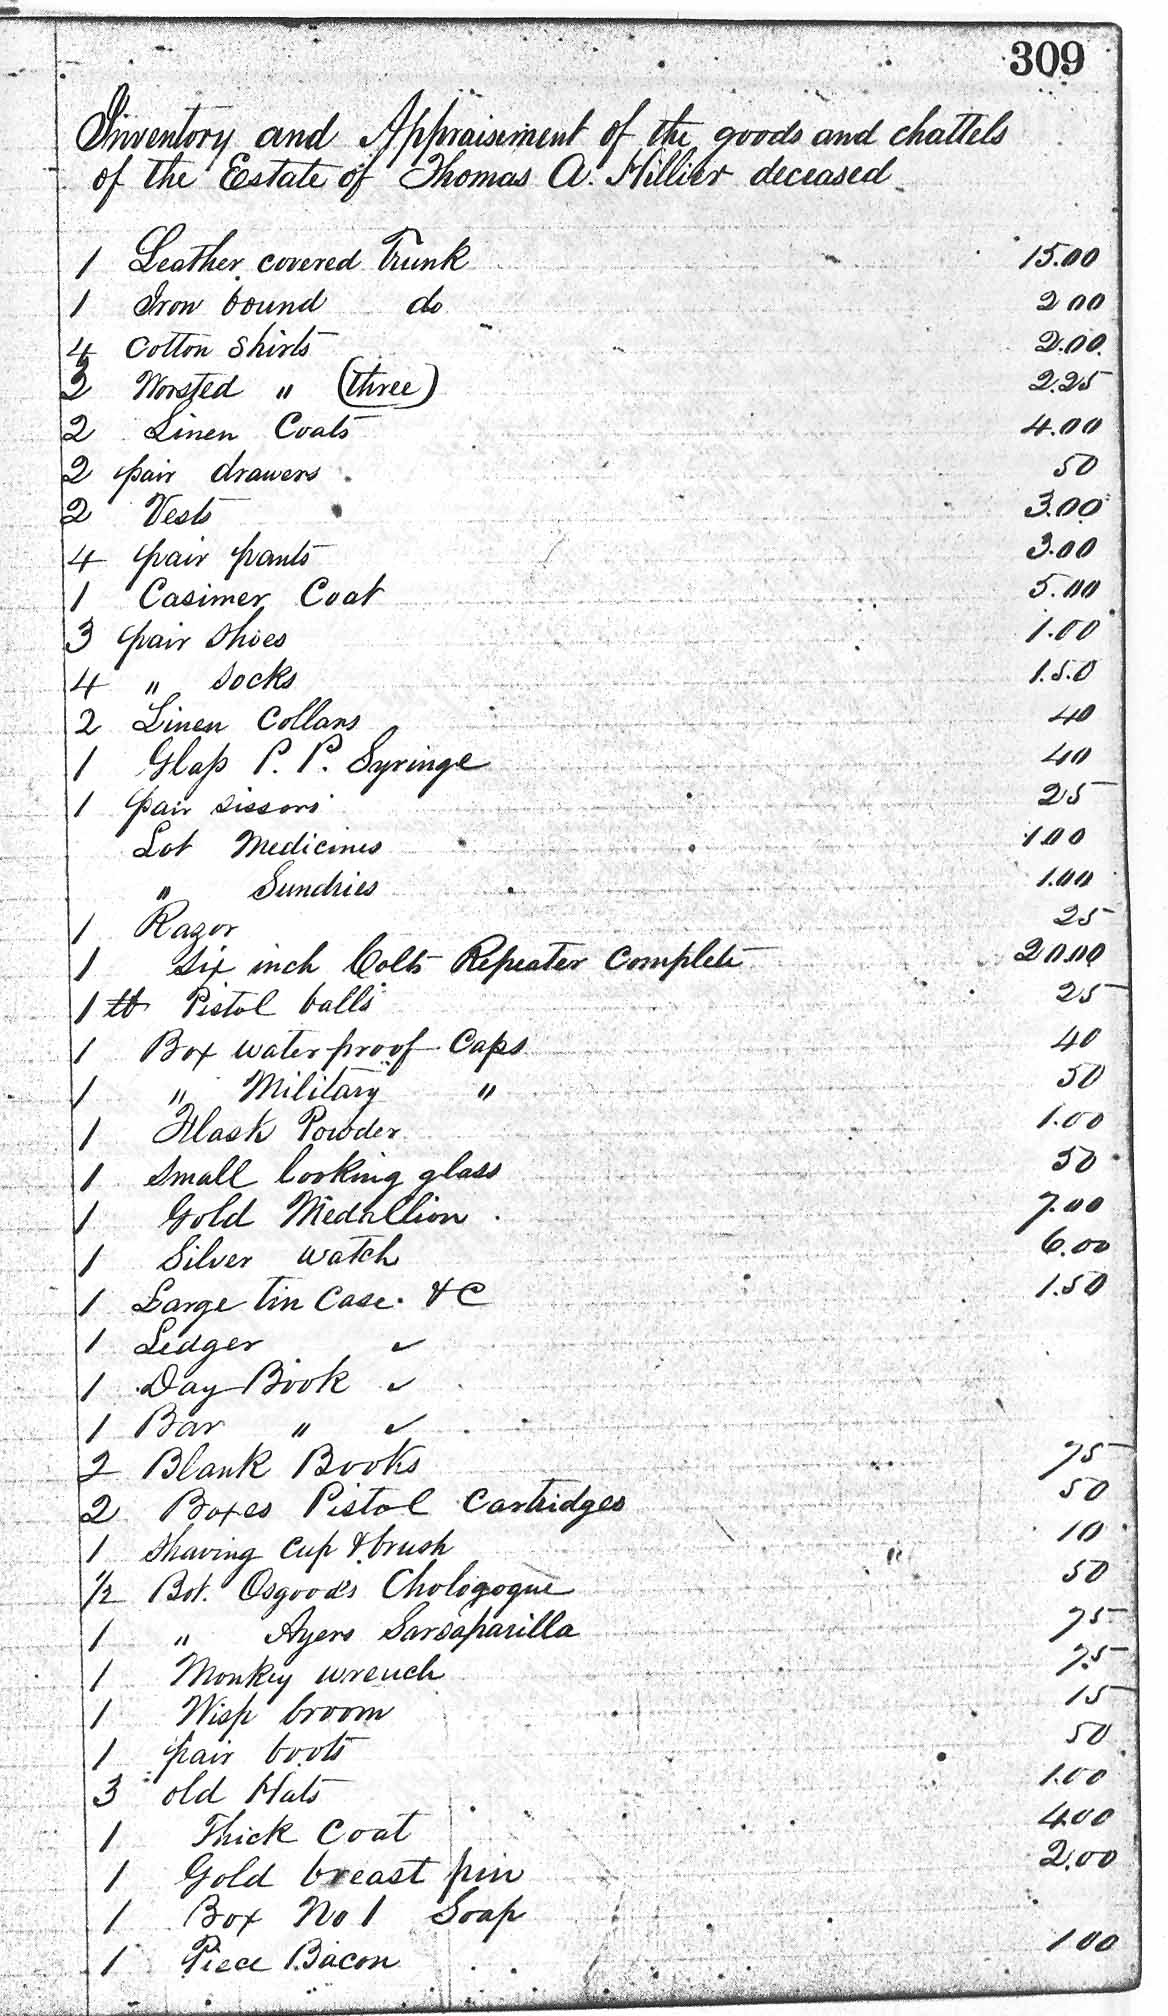 309
Inventory and Appraisement of the goods and chattels
of the Estate of Thomas A. Hillier deceased
1 Leather covered Trunk 15.00
1 Iron bound do 2 00
4 Cotton Shirts 2.00.
2 Worsted " (three) 2.25
2 Linen Coats 4.00
2 pair drawers 50
2 Vests 3.00
4 pair pants 3.00
1 Casimer Coat 5.00
3 pair shoes 1.00
4 " socks 1.50
2 Linen Collars 40
1 Glass P. P. Syringe 40
1 pair sissors 25
Lot Medicines 1.00
" Sundries 1.00
1 Razor 25
1 Six inch Colts Repeater complete 20.00
1 lb Pistol balls 25
1 Box waterproof Caps 40
1 " Military " 50
1 Flask Powder 1.00
1 small looking glass 50
1 Gold Medallion 7.00
1 Silver watch 6.00
1 Large tin Case. &C 1.50
1 Ledger ✓
1 Day Book ✓
1 Bar " ✓
2 Blank Books 75
2 Boxes Pistol Cartridges 50
1 Shaving Cup & brush 10
1/2 Bot. Osgoods Chologogue 50
1 " Ayers Sarsaparilla 75
1 Monkey wrench 75
1 Wisp broom 15
1 pair boots 50
3 old Hats 1.00
1 Thick Coat 4.00
1 Gold breast pin 2.00
1 Box No 1 Soap
1 Piece Bacon 1 00